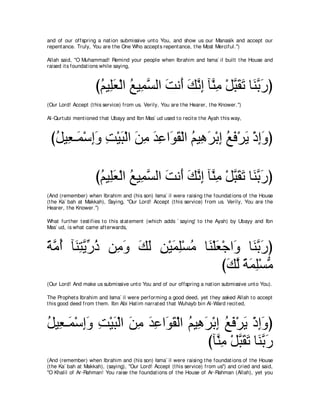 and of our offspring a nation submissive unto You, and show us our Manasik and accept our
repentance. Truly, You are the One Who accepts repentance, the Most Merciful.'')
Allah said, "O Muhammad! Remind your people when Ibrahim and Isma`il built the House and
raised its foundations while saying,
(رَبَّنَا تَقَبَّلْ مِنَّآ إِنَّكَ أَنتَ السَّمِيعُ الْعَلِيمُ)
(Our Lord! Accept (this service) from us. Verily, You are the Hearer, the Knower.'')
Al-Qurtubi mentioned that Ubayy and Ibn Mas`ud used to recite the Ayah this way,
(وَإِذْ يَرْفَعُ إِبْرَهِيمُ الْقَوَاعِدَ مِنَ الْبَيْتِ وَإِسْمَـعِيلُ
(رَبَّنَا تَقَبَّلْ مِنَّآ إِنَّكَ أَنتَ السَّمِيعُ الْعَلِيمُ)
(And (remember) when Ibrahim and (his son) Isma`il were raising the foundations of the House
(the Ka`bah at Makkah), Saying, "Our Lord! Accept (this service) from us. Verily, You are the
Hearer, the Knower.'')
What further testifies to this statement (which adds `saying' to the Ayah) by Ubayy and Ibn
Mas`ud, is what came afterwards,
(رَبَّنَا وَاجْعَلْنَا مُسْلِمَيْنِ لَكَ وَمِن ذُرِّيَّتِنَآ أُمَّةً
مُّسْلِمَةً لَّكَ)
(Our Lord! And make us submissive unto You and of our offspring a nation submissive unto You).
The Prophets Ibrahim and Isma`il were performing a good deed, yet they asked Allah to accept
this good deed from them. Ibn Abi Hatim narrated that Wuhayb bin Al-Ward recited,
(وَإِذْ يَرْفَعُ إِبْرَهِيمُ الْقَوَاعِدَ مِنَ الْبَيْتِ وَإِسْمَـعِيلُ
رَبَّنَا تَقَبَّلْ مِنَّآ)
(And (remember) when Ibrahim and (his son) Isma`il were raising the foundations of the House
(the Ka`bah at Makkah), (saying), "Our Lord! Accept (this service) from us'') and cried and said,
"O Khalil of Ar-Rahman! You raise the foundations of the House of Ar-Rahman (Allah), yet you